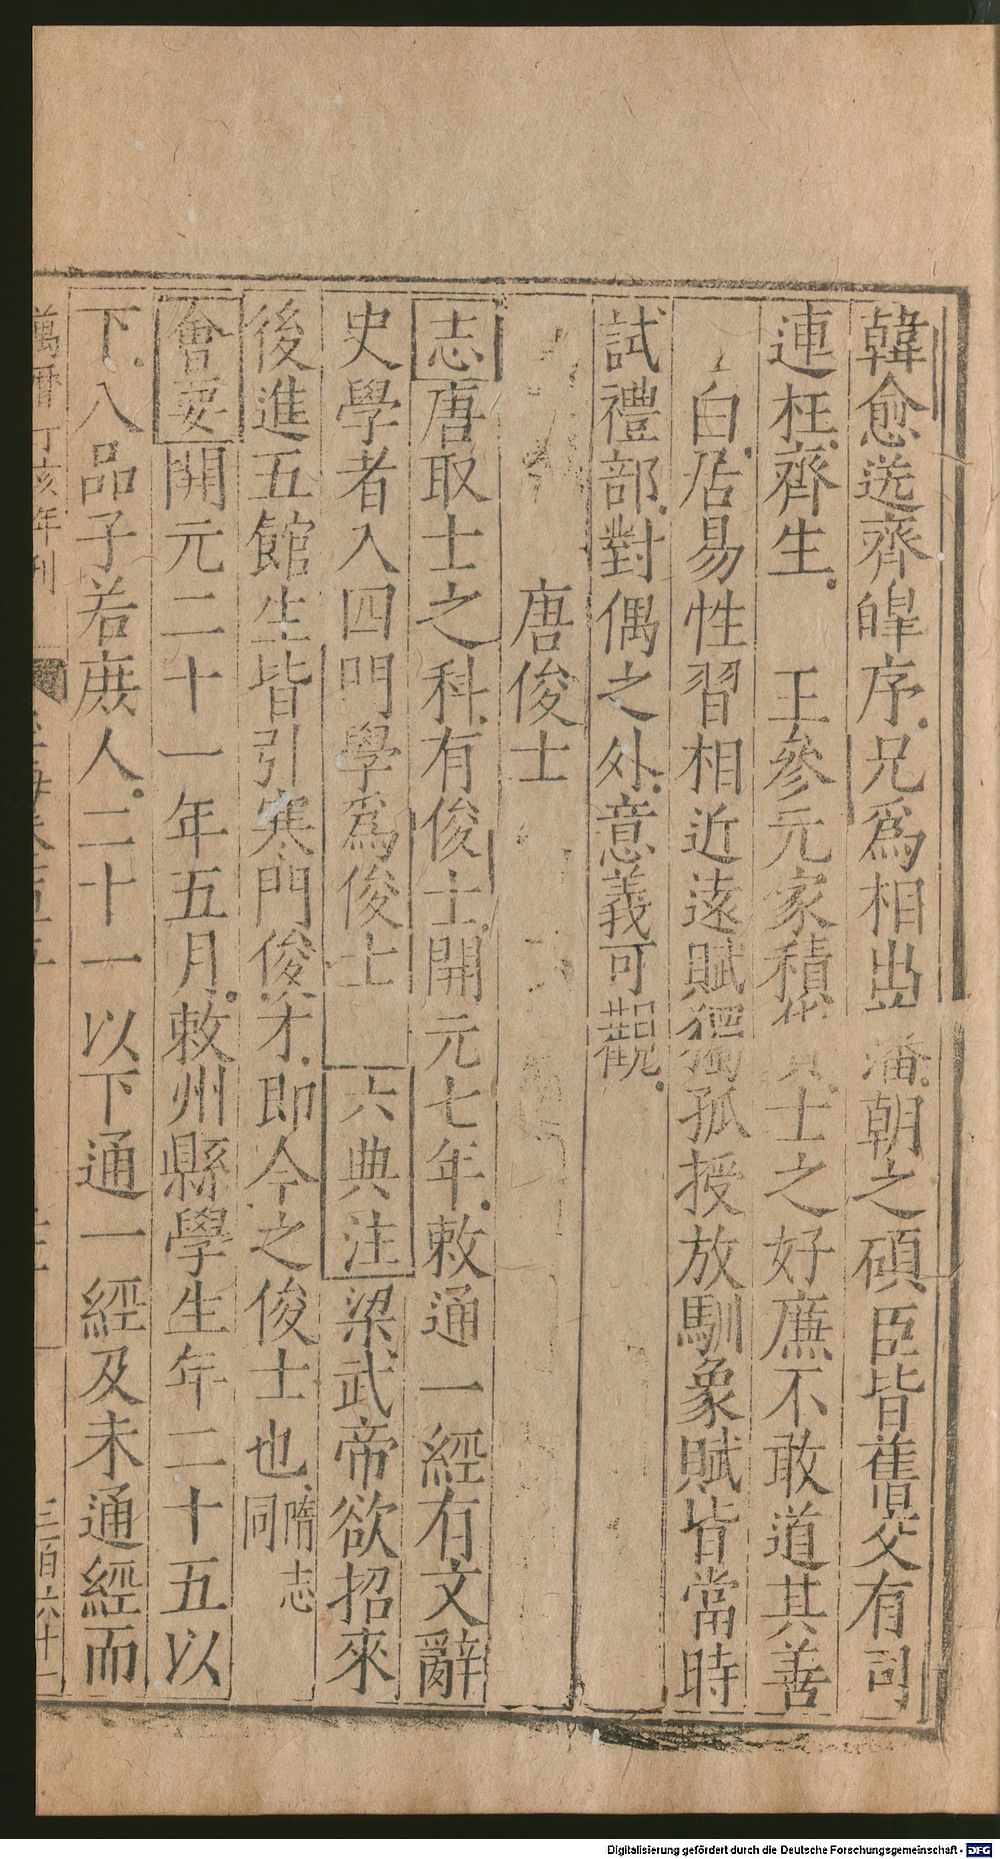 韓愈送齊皥序兄爲相出藩朝之碩臣皆舊交有司
連枉齊生　王參元家積貨士之好廉不敢道其善
白居易性習相近遠賦獨孤授放馴象賦皆當時
試禮部對偶之外意義可觀
唐俊士
志唐取士之科有俊士開元七年敕通一經有文辭
史學者入四門學爲俊士　六典注梁武帝欲招來
後進五館生皆引寒門俊才即今之俊士也隋志同
會要開元二十一年五月敕州縣學生年二十五以
下八品子若庶人二十一以下通一經及未通經而
萬曆丁亥年刊
三百六十一
Digitalisierung gefördert durch die Deutsche Forschungsgemeinschaft - DFG